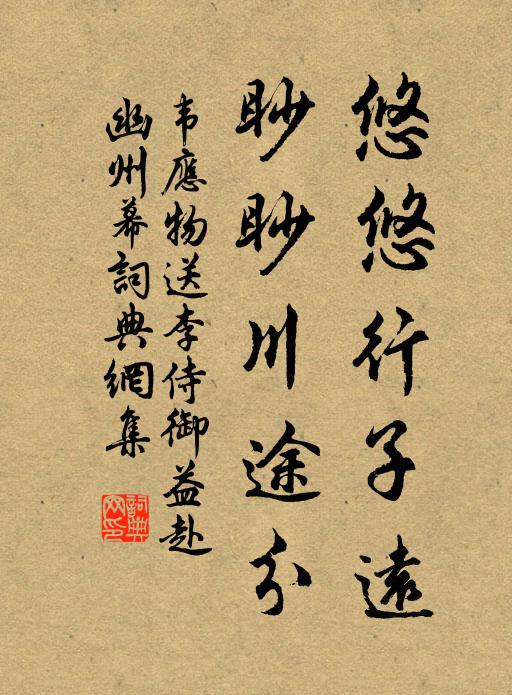 悠悠行子遠
眇眇川途分
韦應物送李侍御益赴
幽州幕詞典網集
詞典网印